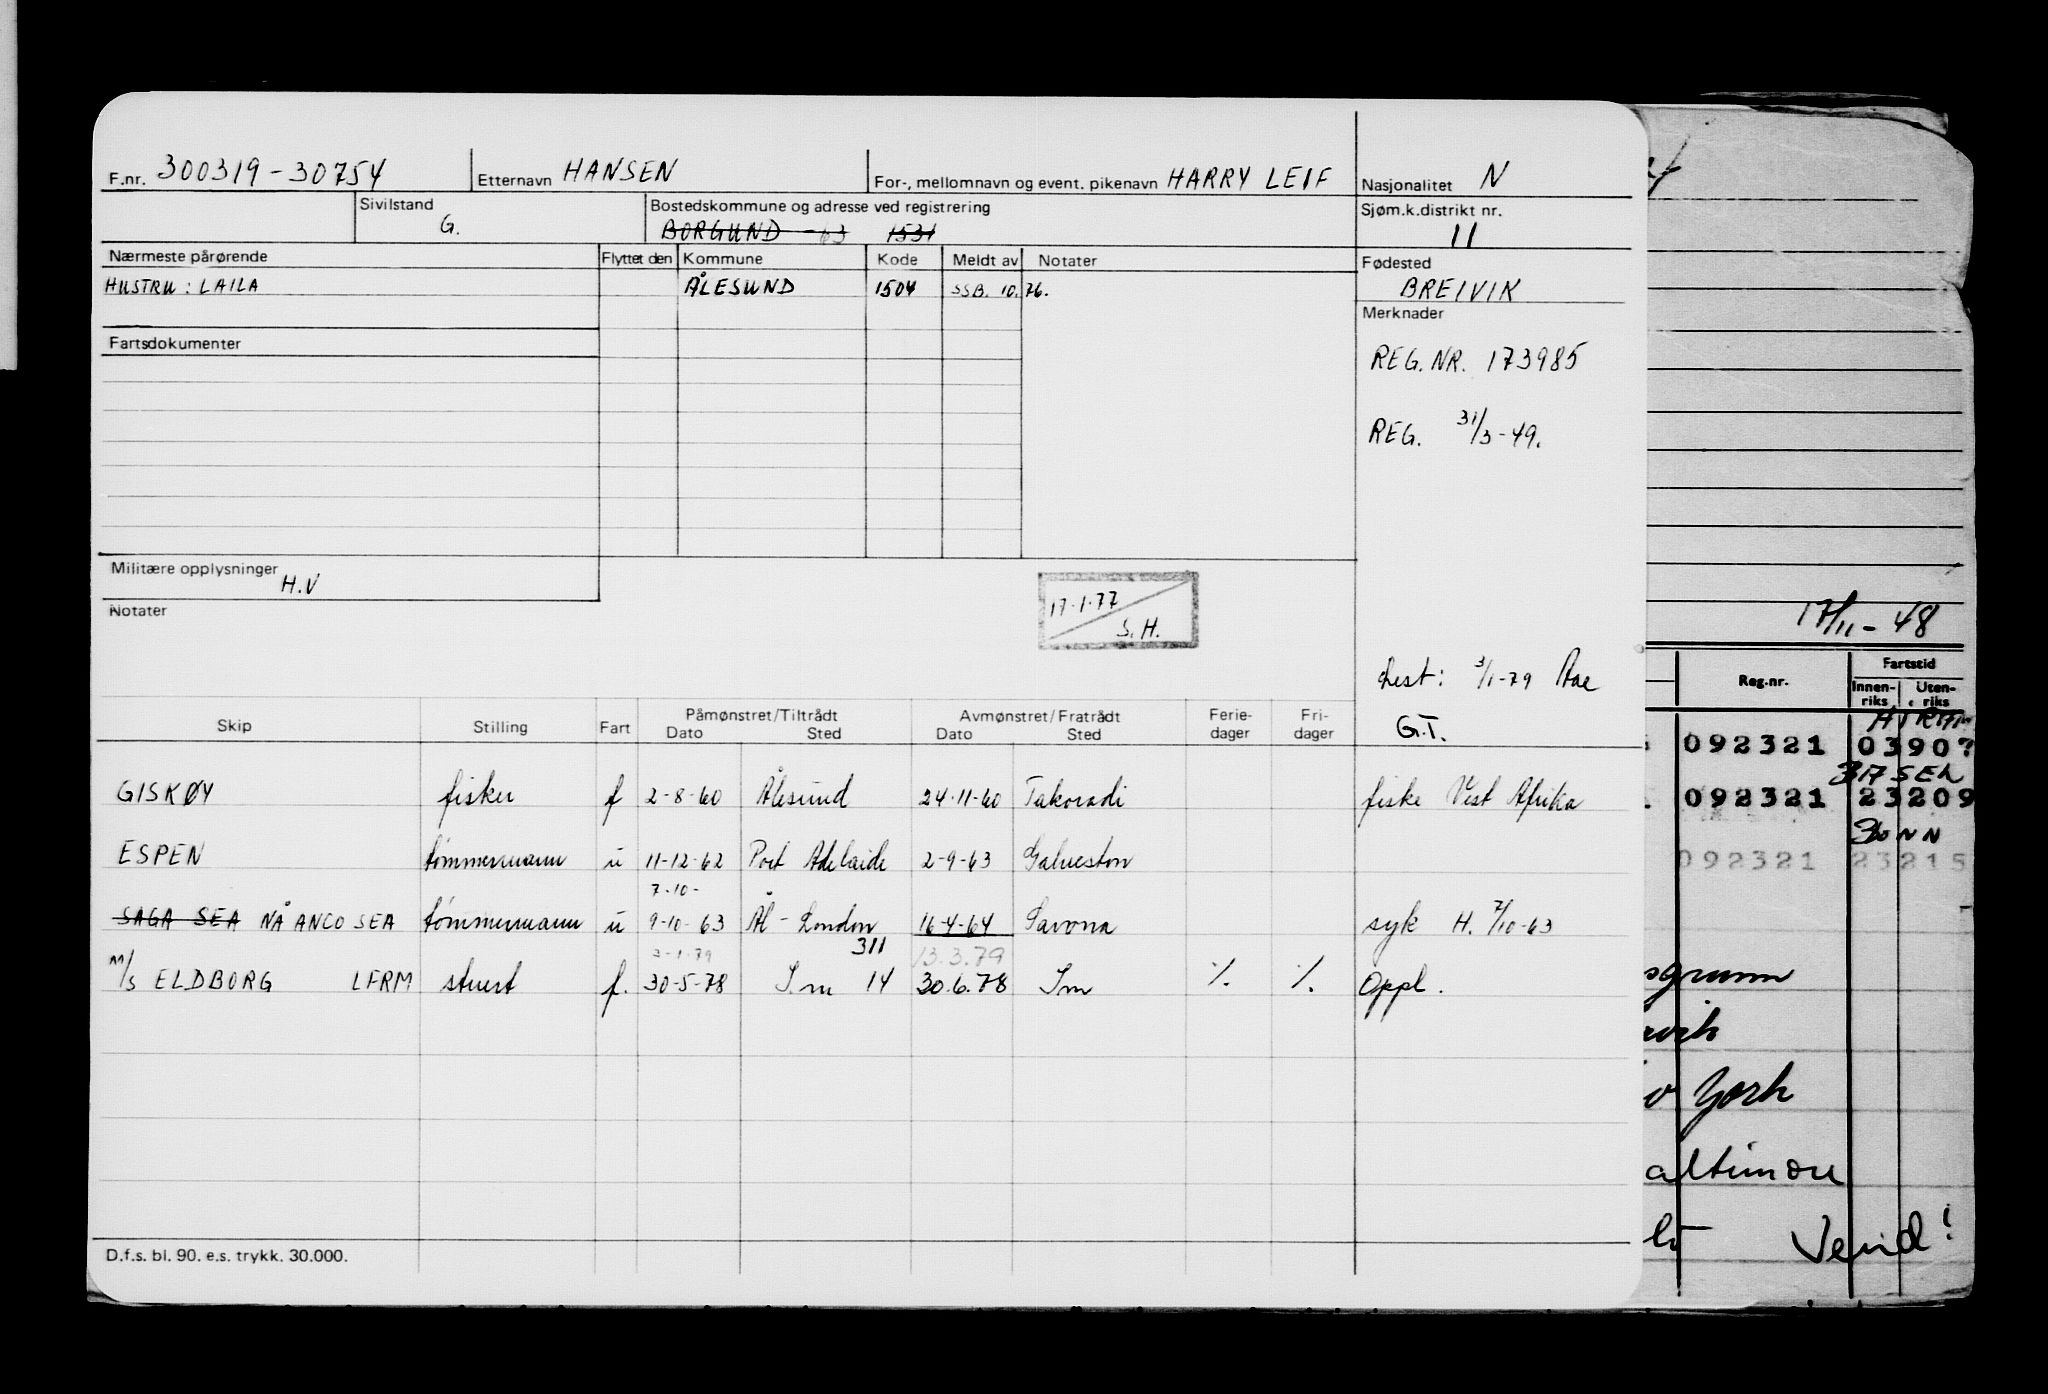 F.nr. 300319-30754 Etternavn HANSEN For-, mellomnavn og event. pikenavn HARRY LEIF Nasjonalitet N
Sivilstand G. Bostedskommune og adresse ved registrering Sjøm.k.distrikt nr. 11
BORGUND -63 1531
Nærmeste pårørende Flyttet den Kommune Kode Meldt av Notater Fødested
HUSTRU: LAILA ÅLESUND 1504 SSB. 10.76. BREIVIK
Merknader
Fartsdokumenter
REG.NR. 173985
REG. 31/3-49.
Militære opplysninger
H.V
Notater
17.1.77
S.H.
17/11-48
3/1-79
G.T.
Skip Stilling Fart Påmønstret/Tiltrådt Avmønstret/Fratrådt Ferie-dager Fri-dager
Dato Sted Dato Sted
GISKØY fisker f 2-8-60 Ålesund 24-11-60 Takoradi fiske Vest Afrika
ESPEN tømmermann u 11-12-62 Port Adelaide 2-9-63 Galveston
7-10-
SAGA SEA NÅ ANCO SEA tømmermann u 9-10-63 Ål - London 16-4-64 Savona syk H. 7/10-63
3-1-79 311 13.3.79
M/S ELDBORG LFRM stuert f. 30-5-78 14 30.6.78 ⁒ ⁒ Oppl.
D.f.s. bl. 90. e.s. trykk. 30.000.
Reg.nr. Fartstid
Innen-riks Uten-riks
092321 0390?
092321 23209
092321 23215
York
altimore
Vend!